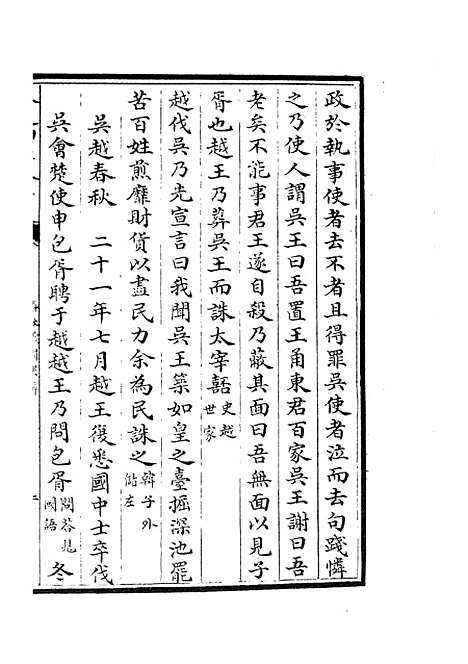 政於執事使者去不者且得罪吳使者泣而去句踐憐
之乃使人謂吳王曰吾置王甬東君百家吳王謝曰吾
老矣不能事君王遂自殺乃蔽其面曰吾無面以見子
胥也越王乃葬吳王而誅太宰嚭史越世家
越伐吳乃先宣言曰我聞吳王築如皇之臺掘深池罷
苦百姓煎靡財貨以盡民力余為民誅之韓子外儲左
吳越春秋　二十一年七月越王復悉國中士卒伐
吳會楚使申包胥聘于越越王乃問包胥問荅見國語冬